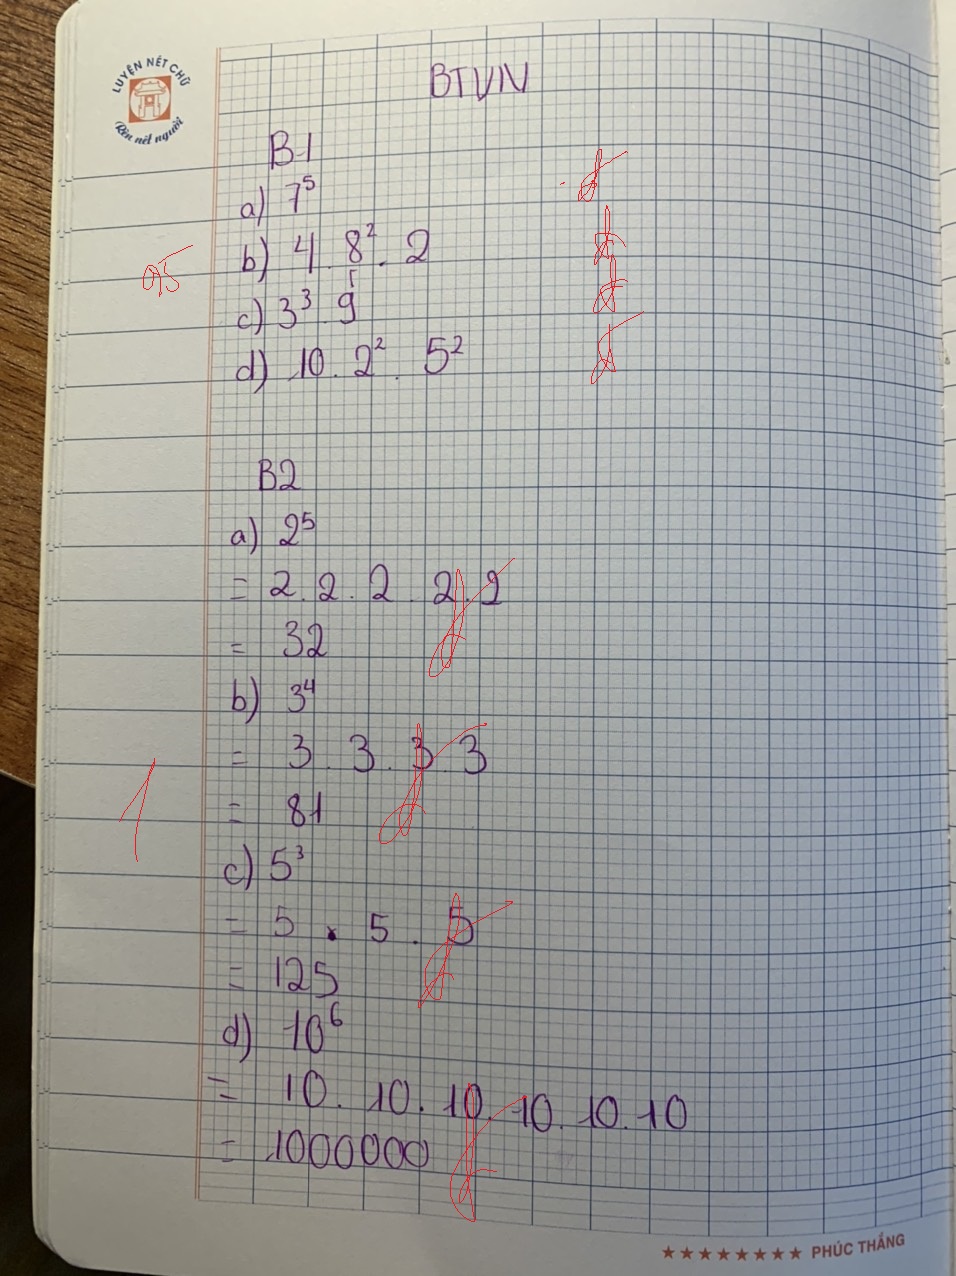 LUYỆN NÉT CHỮ
Rèn nết người
BTVN
B1
a) 7⁵
b) 4 . 8² . 2
c) 3³ . 9
d) 10 . 2² . 5²
0,5
B2
a) 2⁵
= 2 . 2 . 2 . 2 . 2
= 32
b) 3⁴
= 3 . 3 . 3 . 3
= 81
1
c) 5³
= 5 . 5 . 5
= 125
d) 10⁶
= 10 . 10 . 10 . 10 . 10 . 10
= 1000000
★★★★★★★★ PHÚC THẮNG